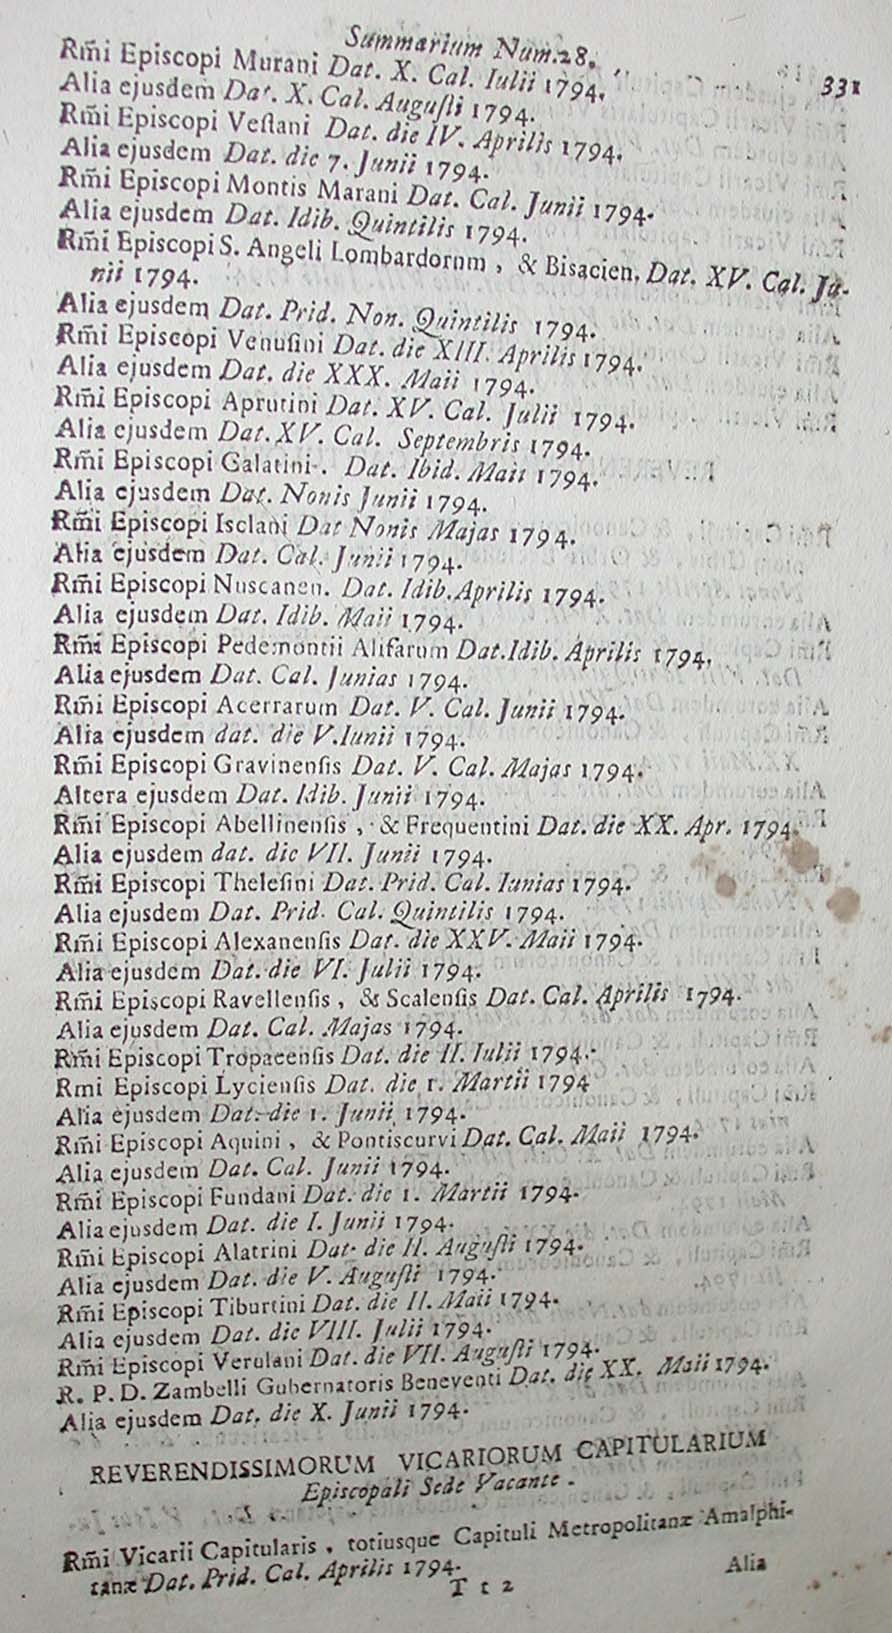 Summarium Num.28. 331
Rm̃i Episcopi Murani Dat. X. Cal. Iulii 1794.
Alia ejusdem Dat. X. Cal. Auguſti 1794.
Rm̃i Episcopi Veſtani Dat. die IV. Aprilis 1794.
Alia ejusdem Dat. die 7. Junii 1794.
Rm̃i Episcopi Montis Marani Dat. Cal. Junii 1794.
Alia ejusdem Dat. Idib. Quintilis 1794.
Rm̃i Episcopi S. Angeli Lombardorum, & Bisacien. Dat. XV. Cal. Ju-
nii 1794.
Alia ejusdem Dat. Prid. Non. Quintilis 1794.
Rm̃i Episcopi Venuſini Dat. die XIII. Aprilis 1794.
Alia ejusdem Dat. die XXX. Maii 1794.
Rm̃i Episcopi Aprutini Dat. XV. Cal. Julii 1794.
Alia ejusdem Dat. XV. Cal. Septembris 1794.
Rm̃i Episcopi Galatini. Dat. Ibid. Maii 1794.
Alia ejusdem Dat. Nonis Junii 1794.
Rm̃i Episcopi Isclani Dat Nonis Majas 1794.
Alia ejusdem Dat. Cal. Junii 1794.
Rm̃i Episcopi Nuscanen. Dat. Idib. Aprilis 1794.
Alia ejusdem Dat. Idib. Maii 1794.
Rm̃i Episcopi Pedemontii Alifarum Dat. Idib. Aprilis 1794.
Alia ejusdem Dat. Cal. Junias 1794.
Rm̃i Episcopi Acerrarum Dat. V. Cal. Junii 1794.
Alia ejusdem dat. die V. Iunii 1794.
Rm̃i Episcopi Gravinenſis Dat. V. Cal. Majas 1794.
Altera ejusdem Dat. Idib. Junii 1794.
Rm̃i Episcopi Abellinenſis, & Frequentini Dat. die XX. Apr. 1794.
Alia ejusdem dat. die VII. Junii 1794.
Rm̃i Episcopi Theleſini Dat. Prid. Cal. Iunias 1794.
Alia ejusdem Dat. Prid. Cal. Quintilis 1794.
Rm̃i Episcopi Alexanenſis Dat. die XXV. Maii 1794.
Alia ejusdem Dat. die VI. Julii 1794.
Rm̃i Episcopi Ravellenſis, & Scalenſis Dat. Cal. Aprilis 1794.
Alia ejusdem Dat. Cal. Majas 1794.
Rm̃i Episcopi Tropaeenſis Dat. die II. Iulii 1794.
Rmi Episcopi Lycienſis Dat. die 1. Martii 1794
Alia ejusdem Dat. die 1. Junii 1794.
Rm̃i Episcopi Aquini, & Pontiscurvi Dat. Cal. Maii 1794.
Alia ejusdem Dat. Cal. Junii 1794.
Rm̃i Episcopi Fundani Dat. die 1. Martii 1794.
Alia ejusdem Dat. die I. Junii 1794.
Rm̃i Episcopi Alatrini Dat. die II. Auguſti 1794.
Alia ejusdem Dat. die V. Auguſti 1794.
Rm̃i Episcopi Tiburtini Dat. die II. Maii 1794.
Alia ejusdem Dat. die VIII. Julii 1794.
Rm̃i Episcopi Verulani Dat. die VII. Auguſti 1794.
R. P. D. Zambelli Gubernatoris Beneventi Dat. die XX. Maii 1794.
Alia ejusdem Dat. die X. Junii 1794.
REVERENDISSIMORUM VICARIORUM CAPITULARIUM
Episcopali Sede Vacante.
Rm̃i Vicarii Capitularis, totiusque Capituli Metropolitanæ Amalphi-
tanæ Dat. Prid. Cal. Aprilis 1794.
T t 2 Alia